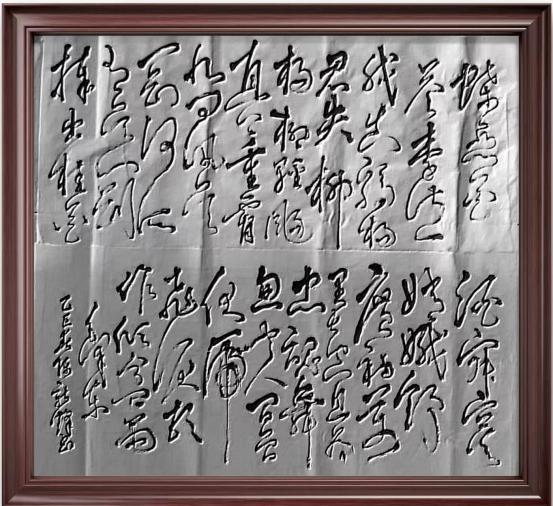 蝶恋花
答李淑一
我失骄杨
君失柳
杨柳轻飏
直上重霄
九问讯吴
刚何所
有吴刚
捧出桂花
酒寂寞
嫦娥舒
广袖万
里长空且为
忠魂舞
忽报人间曾
伏虎
泪飞顿
作倾盆雨
毛泽东
乙巳